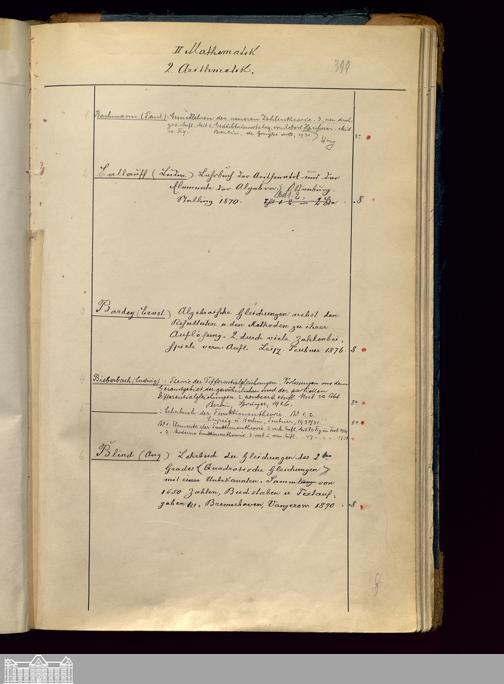 II Mathematik
399
2 Arithmetik.
1 Bachmann (Paul): Grundlehren der neueren Zahlentheorie. 3., neu durch-
ges. Aufl. hrsg. von Robert Haußner. Mit
Berlin, de Gruyter 1931.
8° 
2 Ballauff (Ludw.) Lehrbuch der Arithmetik und der
Elemente der Algebra. Oldenburg.
Stalling 1870.
2 Bde
8
3 Bardey (Ernst) Algebraische Gleichungen nebst den
Resultaten u den Methoden zu ihrer
Auflösung. 2. durch viele Zahlenbei-
spiele verm. Aufl. Leipz Teubner 1876.
8
4 Bieberbach (Ludwig): Theorie der Differentialgleichungen. Vorlesungen aus dem
Gesamtgebiet der gewöhnlichen und der partiellen
Differentialgleichungen 2. neubearb. Aufl. Mit 22 Abb
Berlin, Springer, 1926.
8°
5 - : Lehrbuch der Funktionentheorie. Bd 1. 2.
Leipzig u. Berlin, Teubner,
Bd 1. Elemente der Funktionentheorie
2. Moderne Funktionentheorie
8°
6 Blind (Aug) Lehrbuch der Gleichungen des 2ten
Grades (Quadratische Gleichungen)
mit einer Unbekannten. Sammlung von
1650 Zahlen, Buchstaben u Textauf-
gaben etc. Bremerhaven, Vangerow 1890
8